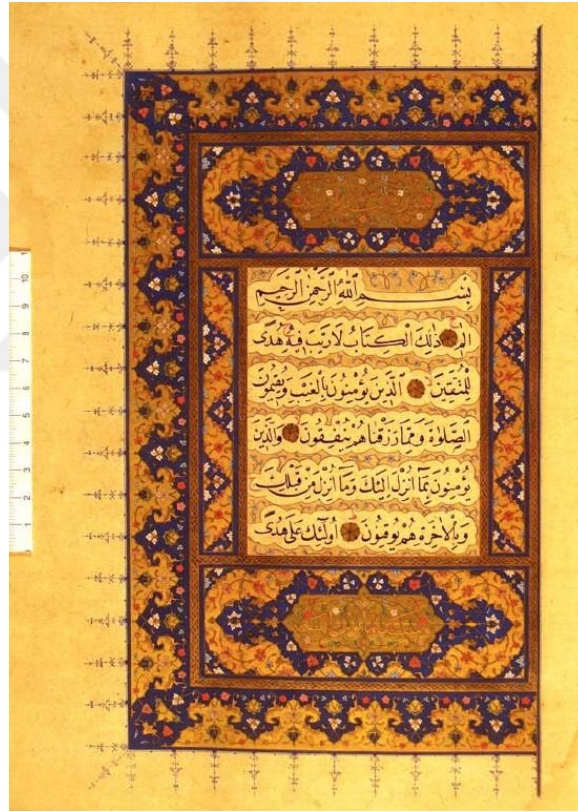 بِسْمِ اللّٰهِ الرَّحْمٰنِ الرَّحِيمِ
الم ذٰلِكَ الْكِتَابُ لَارَيْبَ فِيهِ هُدًى
لِلْمُتَّقِينَ الَّذِينَ يُؤْمِنُونَ بِالْغَيْبِ وَيُقِيمُونَ
الصَّلٰوةَ وَمِمَّا رَزَقْنَاهُمْ يُنْفِقُونَ وَالَّذِينَ
يُؤْمِنُونَ بِمَا اُنْزِلَ اِلَيْكَ وَمَا اُنْزِلَ مِنْ قَبْلِكَ
وَبِالْاٰخِرَةِ هُمْ يُوقِنُونَ اُولٰئِكَ عَلٰى هُدًى
10
9
8
7
6
5
4
3
2
1